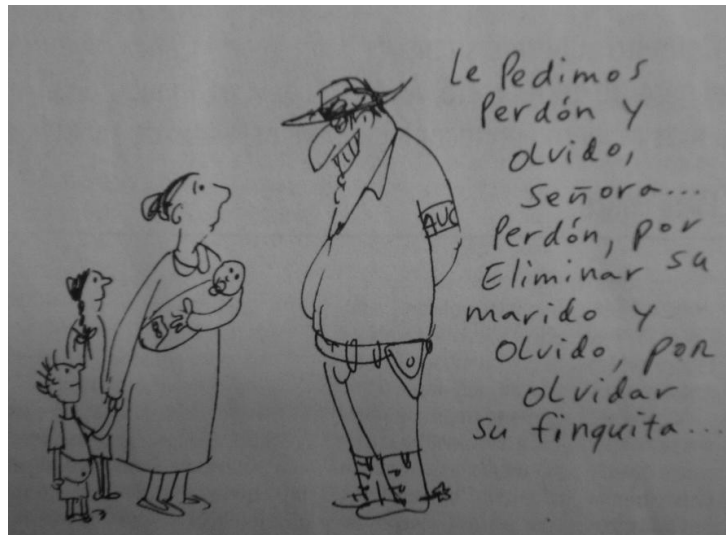 Le Pedimos
Perdón y
olvido,
señora...
Perdón, por
Eliminar su
marido y
olvido, por
olvidar
su finquita...
AUC